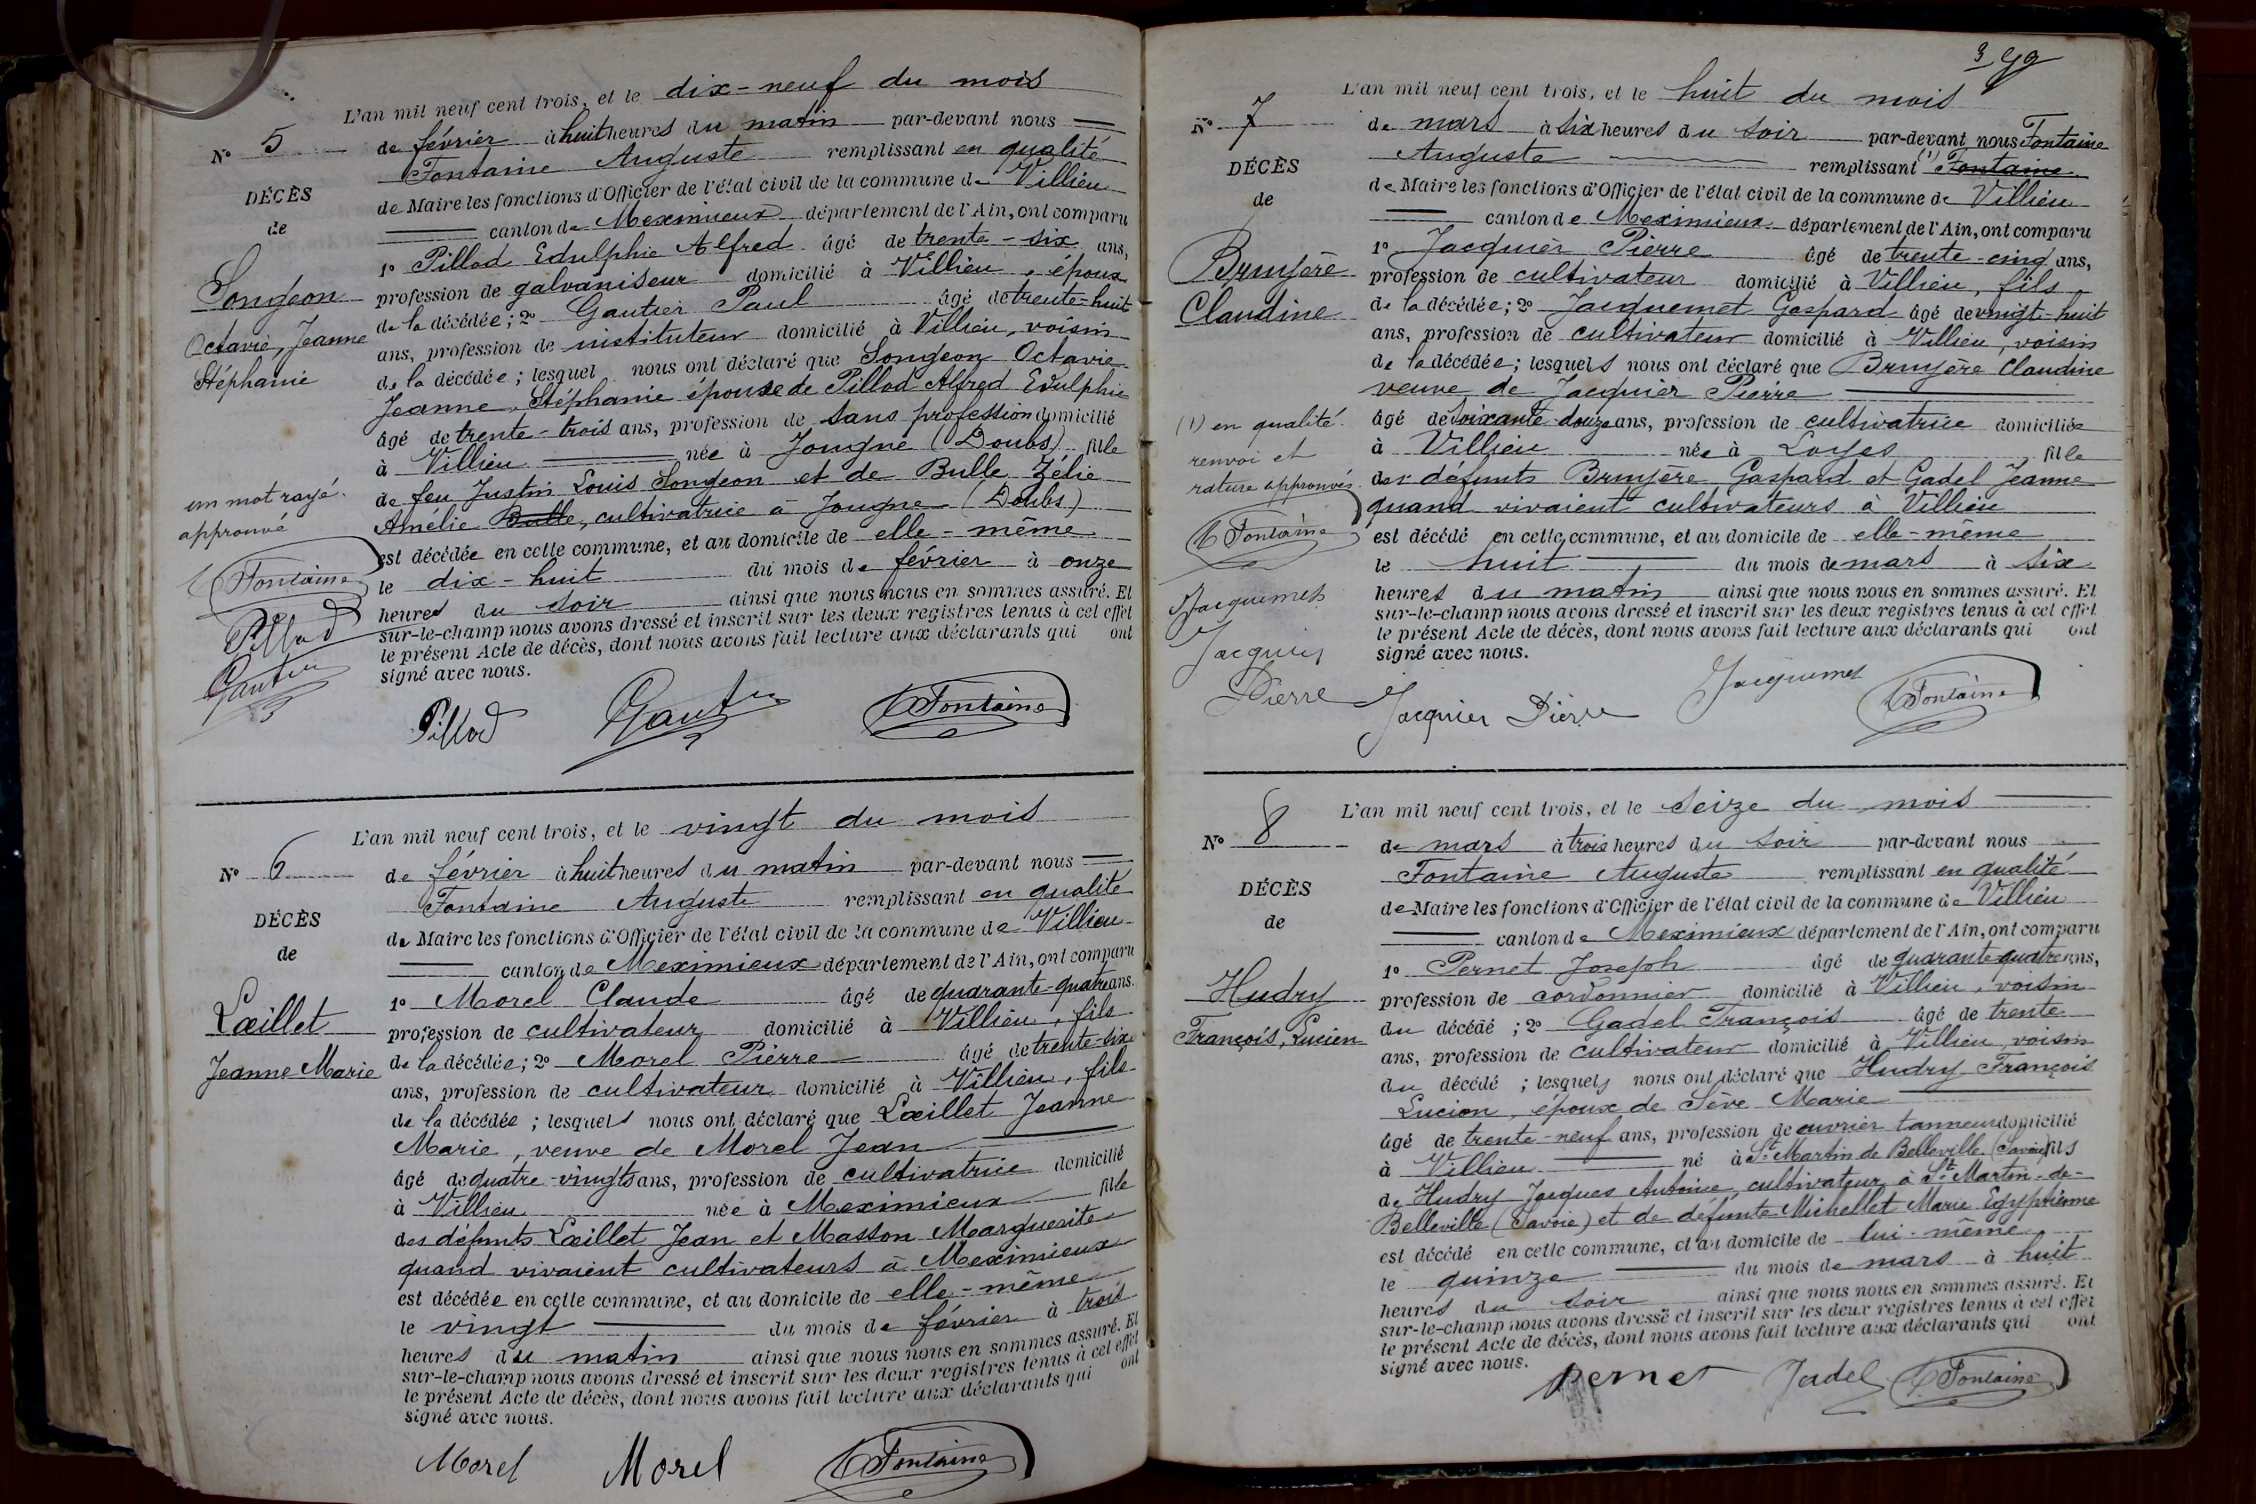 L'an mil neuf cent trois, et le dix-neuf du mois
N° 5
de février à huit heures du matin par-devant nous
Fontaine Auguste remplissant en qualité
DÉCÈS
de Maire les fonctions d'Officier de l'état civil de la commune de Villieu
de
canton de Meximieux département de l'Ain, ont comparu
1° Pillod Edulphie Alfred âgé de trente-six ans,
Songeon
profession de galvaniseur domicilié à Villieu, époux
de la décédée; 2° Gautier Paul âgé de trente-huit
Octavie, Jeanne
ans, profession de instituteur domicilié à Villieu, voisin
Stéphanie
de la décédée; lesquel nous ont déclaré que Songeon Octavie
Jeanne, Stéphanie épouse de Pillod Alfred Edulphie
âgé de trente-trois ans, profession de sans profession domicilié
à Villieu née à Jougne (Doubs) fille
un mot rayé
de feu Justin Louis Songeon et de Bulle Zélie
approuvé
Amélie Bulle, cultivatrice à Jougne (Doubs)
est décédée en cette commune, et au domicile de elle-même
Fontaine
le dix-huit du mois de février à onze
heures du soir ainsi que nous nous en sommes assuré. Et
Pillod
sur-le-champ nous avons dressé et inscrit sur les deux registres tenus à cet effet
le présent Acte de décès, dont nous avons fait lecture aux déclarants qui ont
Gautier
signé avec nous.
Pillod Gautier Fontaine
L'an mil neuf cent trois, et le vingt du mois
N° 6
de février à huit heures du matin par-devant nous
Fontaine Auguste remplissant en qualité
DÉCÈS
de Maire les fonctions d'Officier de l'état civil de la commune de Villieu
de
canton de Meximieux département de l'Ain, ont comparu
1° Morel Claude âgé de quarante-quatre ans.
Lœillet
profession de cultivateur domicilié à Villieu, fils
Jeanne Marie
de la décédée; 2° Morel Pierre âgé de trente-six
ans, profession de cultivateur domicilié à Villieu, fils
de la décédée; lesquels nous ont déclaré que Lœillet Jeanne
Marie, veuve de Morel Jean
âgé de quatre-vingts ans, profession de cultivatrice domicilié
à Villieu née à Meximieux fille
des défunts Lœillet Jean et Masson Marguerite
quand vivaient cultivateurs à Meximieux
est décédée en cette commune, et au domicile de elle-même
le vingt du mois de février à trois
heures du matin ainsi que nous nous en sommes assuré. Et
sur-le-champ nous avons dressé et inscrit sur les deux registres tenus à cet effet
le présent Acte de décès, dont nous avons fait lecture aux déclarants qui ont
signé avec nous.
Morel Morel Fontaine
L'an mil neuf cent trois, et le huit du mois
N° 7
de mars à six heures du soir par-devant nous Fontaine
Auguste remplissant (1) Fontaine
DÉCÈS
de Maire les fonctions d'Officier de l'état civil de la commune de Villieu
de
canton de Meximieux département de l'Ain, ont comparu
1° Jacquier Pierre âgé de trente-cinq ans,
Bruyère
profession de cultivateur domicilié à Villieu, fils
Claudine
de la décédée; 2° Jacquemet Gaspard âgé de vingt-huit
ans, profession de cultivateur domicilié à Villieu, voisin
de la décédée; lesquels nous ont déclaré que Bruyère Claudine
veuve de Jacquier Pierre
(1) en qualité
âgé de soixante-douze ans, profession de cultivatrice domiciliée
renvoi et
à Villieu née à Loyes fille
rature approuvés
des défunts Bruyère Gaspard et Gadel Jeanne
quand vivaient cultivateurs à Villieu
Fontaine
est décédé en cette commune, et au domicile de elle-même
le huit du mois de mars à six
Jacquemet
heures du matin ainsi que nous nous en sommes assuré. Et
sur-le-champ nous avons dressé et inscrit sur les deux registres tenus à cet effet
Jacquier
le présent Acte de décès, dont nous avons fait lecture aux déclarants qui ont
signé avec nous.
Pierre
Jacquier Pierre Jacquemet Fontaine
L'an mil neuf cent trois, et le seize du mois
N° 8
de mars à trois heures du soir par-devant nous
Fontaine Auguste remplissant en qualité
DÉCÈS
de Maire les fonctions d'Officier de l'état civil de la commune de Villieu
de
canton de Meximieux département de l'Ain, ont comparu
1° Pernet Joseph âgé de quarante-quatre ans,
Hudry
profession de cordonnier domicilié à Villieu, voisin
François, Lucien
du décédé; 2° Gadel François âgé de trente
ans, profession de cultivateur domicilié à Villieu, voisin
du décédé; lesquels nous ont déclaré que Hudry François
Lucien, époux de Sève Marie
âgé de trente-neuf ans, profession de ouvrier tanneur domicilié
à Villieu né à St Martin de Belleville (Savoie) fils
de Hudry Jacques Antoine, cultivateur à St Martin-de-
Belleville (Savoie) et de défunte Michellet Marie Egyptienne
est décédé en cette commune, et au domicile de lui-même
le quinze du mois de mars à huit
heures du soir ainsi que nous nous en sommes assuré. Et
sur-le-champ nous avons dressé et inscrit sur les deux registres tenus à cet effet
le présent Acte de décès, dont nous avons fait lecture aux déclarants qui ont
signé avec nous.
Pernet Jadel Fontaine